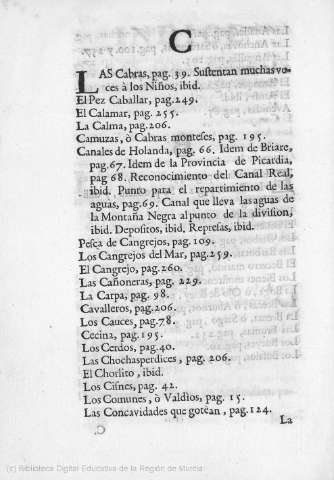 C
LAS Cabras, pag. 39. Sustentan muchas vo-
ces à los Niños, ibid.
El Pez Caballar, pag.249.
El Calamar, pag. 255.
La Calma, pag.206.
Camuzas, ò Cabras monteses, pag. 195.
Canales de Holanda, pag. 66. Idem de Briare,
pag.67. Idem de la Provincia de Picardia,
pag 68. Reconocimiento del Canal Real,
ibid. Punto para el repartimiento de las
aguas, pag.69. Canal que lleva las aguas de
la Montaña Negra al punto de la division,
ibid. Depositos, ibid, Represas, ibid.
Pesca de Cangrejos, pag. 109.
Los Cangrejos del Mar, pag.259.
El Cangrejo, pag.260.
Las Cañoneras, pag. 229.
La Carpa, pag. 98.
Cavalleros, pag.206.
Los Cauces, pag.78.
Cecina, pag.195.
Los Cerdos, pag.40.
Las Chochasperdices, pag. 206.
El Chorlito, ibid.
Los Cisnes, pag. 42.
Los Comunes, ò Valdìos, pag. 15.
Las Concavidades que gotean, pag.124.
La
(c) Biblioteca Digital Educativa de la Región de Murcia